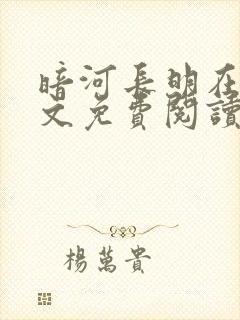 暗河長明在
文免費閱讀
楊萬貴